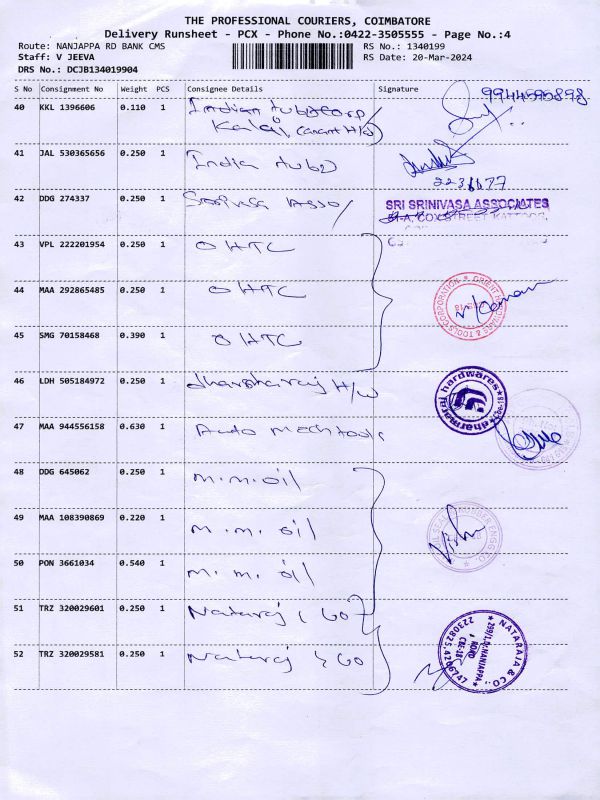 THE PROFESSIONAL COURIERS, COIMBATORE
Delivery Runsheet - PCX - Phone No.:0422-3505555 - Page No.:4
Route: NANJAPPA RD BANK CMS RS No.: 1340199
Staff: V JEEVA RS Date: 20-Mar-2024
DRS No.: DCJB134019904
S No Consignment No Weight PCS Consignee Details Signature
40 KKL 1396606 0.110 1 Indian tube corp 9944595898
41 JAL 530365656 0.250 1 India tube
2236677
42 DDG 274337 0.250 1 SRI SRINIVASA ASSOCIATES
43 VPL 222201954 0.250 1 OHTC
44 MAA 292865485 0.250 1 OHTC
45 SMG 70158468 0.390 1 OHTC
46 LDH 505184972 0.250 1 H/w dharmaraj hardwares
47 MAA 944556158 0.630 1 Auto Mech tools
48 DDG 645062 0.250 1 m.m.oil
49 MAA 108390869 0.220 1 m.m.oil
50 PON 3661034 0.540 1 m.m.oil
51 TRZ 320029601 0.250 1 Nataraj & Co
NATARAJA & CO.
52 TRZ 320029581 0.250 1 Nataraj & Co